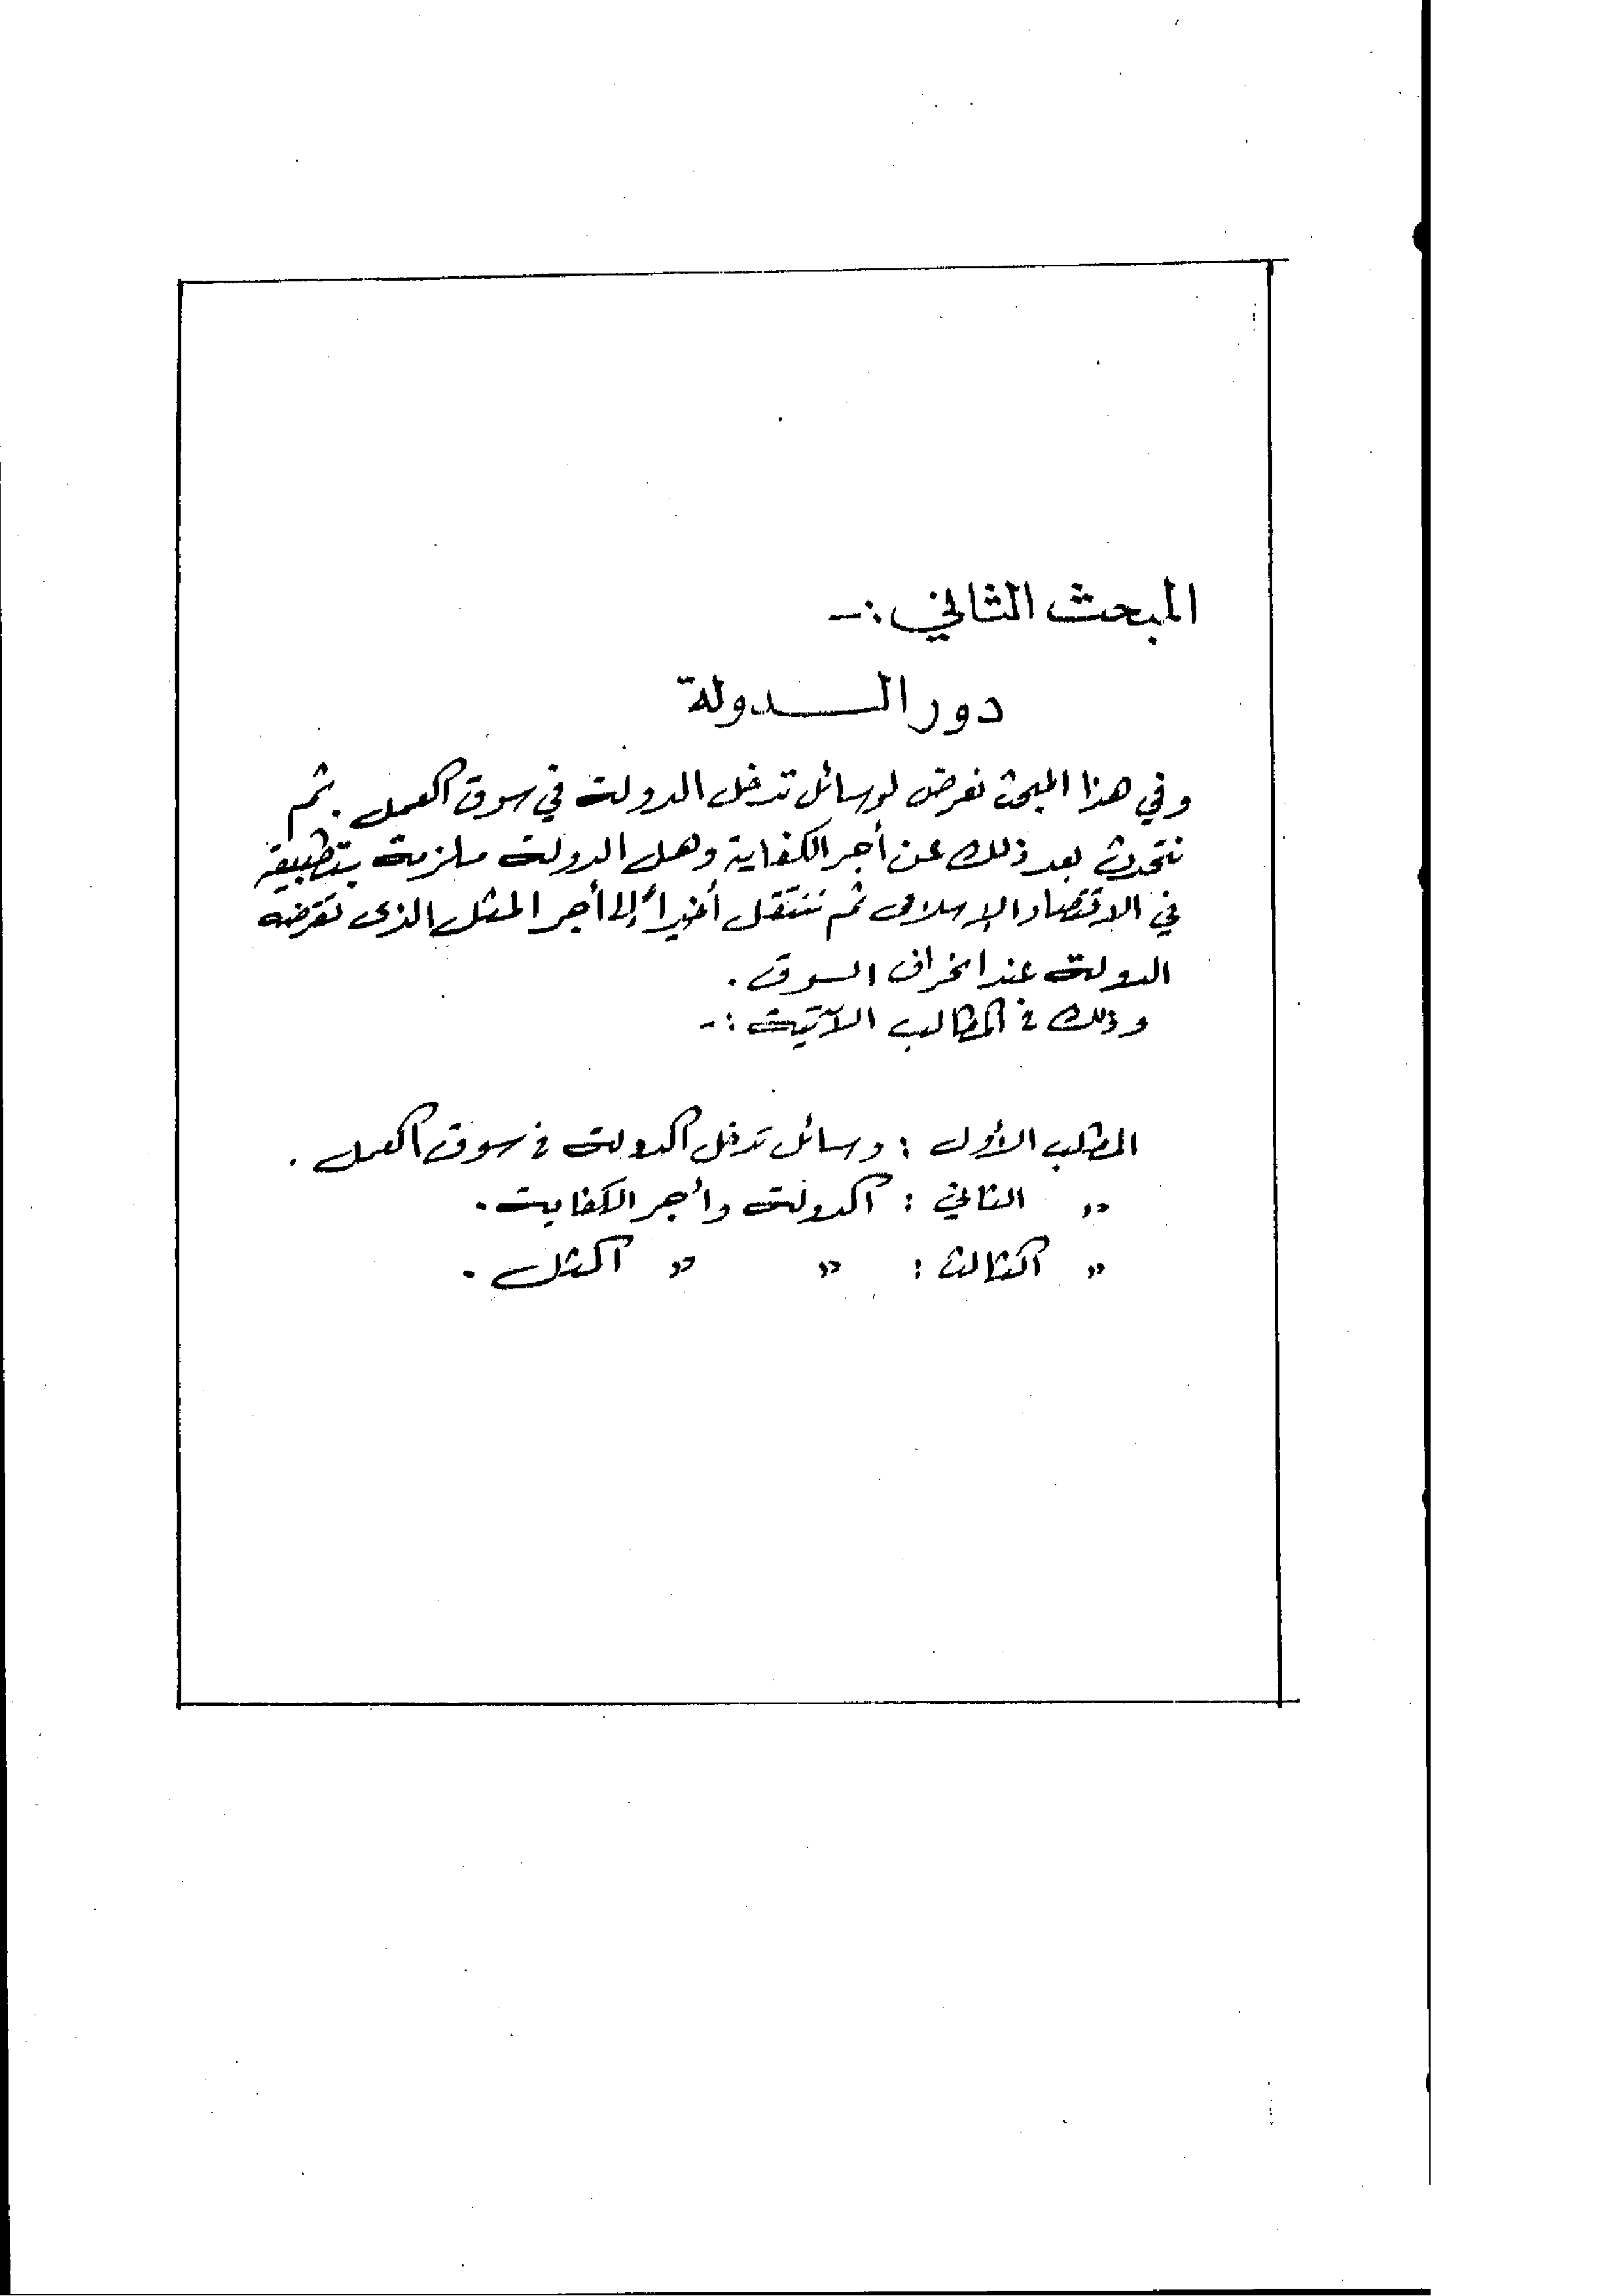 المبحث الثاني :-
دور الـــدولة
وفي هذا المبحث نعرض لوسائل تدخل الدولة في سوق العمل . ثم
نتحدث بعد ذلك عن أجر الكفاية وهل الدولة ملزمة بتطبيقه
في الاقتصاد الإسلامى ثم ننتقل أخيراً إلى أجر المثل الذى تفرضه
الدولة عند انحراف السوق .
وذلك فى المطالب الآتية :-
المطلب الأول : وسائل تدخل الدولة فى سوق العمل .
" الثاني : الدولة وأجر الكفاية .
" الثالث : " " المثل .